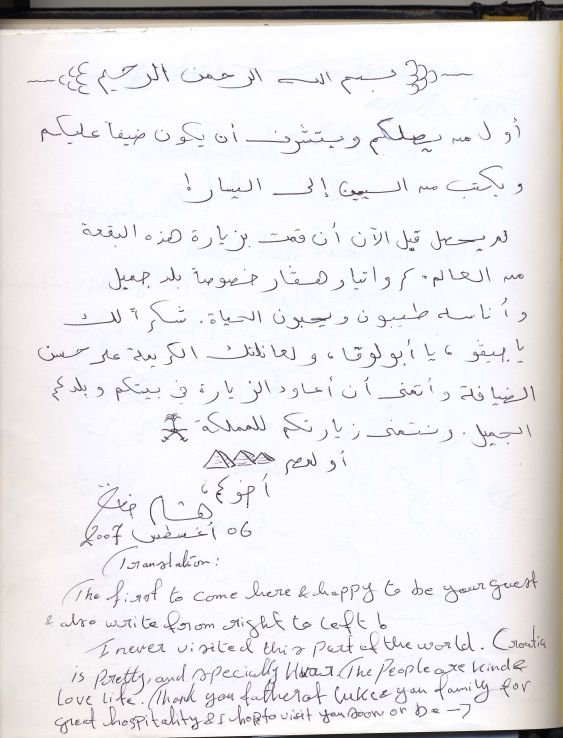 بسم الله الرحمن الرحيم
أول من يصلكم ويتشرف أن يكون ضيفاً عليكم
ويكتب من اليمين إلى اليسار!
لم يحصل قبل الآن أن قمت بزيارة هذه البقعة
من العالم. كرواتيا وهڤار خصوصاً بلد جميل
وأناسه طيبون ويحبون الحياة. شكراً لك
يا أبو لوقا، ولعائلتك الكريمة على حسن
الضيافة وأتمنى أن أعاود الزيارة في بيتكم وبلدكم
الجميل. ونتمنى زيارتكم للمملكة
أو لمصر
أخوكم،
هشام
06 أغسطس 2007
Translation:
The first to come here & happy to be your guest
& also write from right to left
I never visited this part of the world. Croatia
is pretty, and specially Hvar. The People are kind &
love life. Thank you father of Lukca you family for
great hospitality & I hop to visit you soon or be →